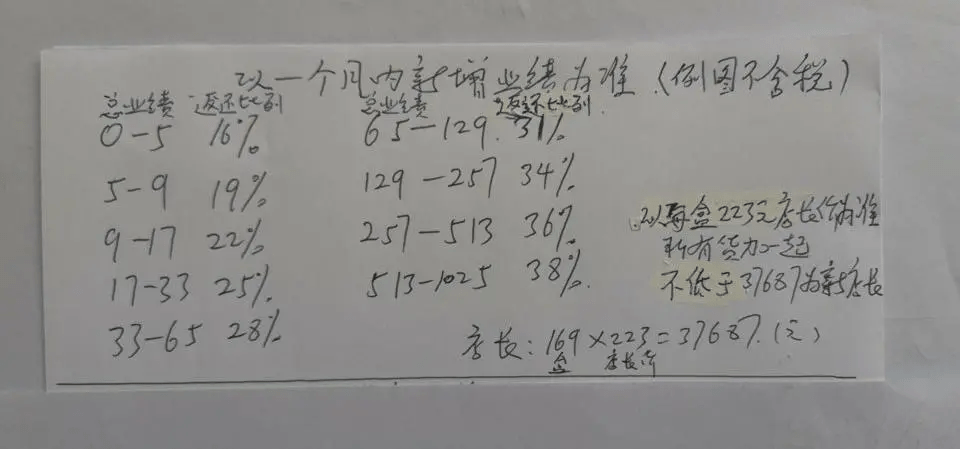 以一个月内新增业绩为准（例图不含税）
总业绩 返还比列 总业绩 返还比列
0-5 16% 65-129 31%
5-9 19% 129-257 34%
9-17 22% 257-513 36%
17-33 25% 513-1025 38%
33-65 28%
以每盒223元店长价为准
所有货加一起
不低于37687为新店长
店长：169×223=37687（元）
盒 店长价